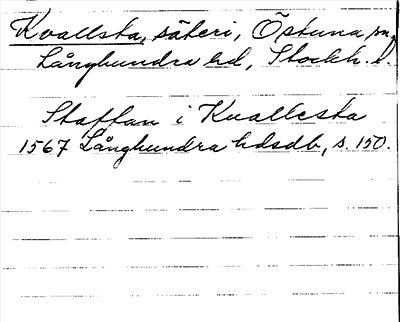 Kvallsta, säteri, Östuna sn,
Långhundra hd, Stockh. l.
Staffan i Kuallesta
1567 Långhundra hdsdb, s. 150.